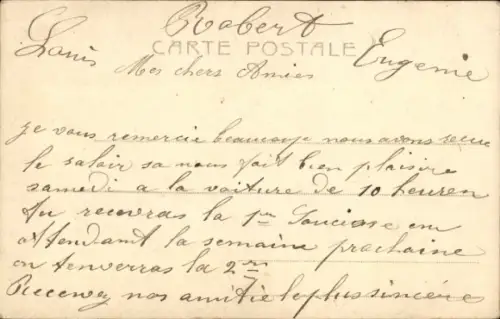 Robert
Louis
CARTE POSTALE
Eugenie
Mes chers Amies
je vous remercie beaucoup nous avons recue
le salair sa nous fait bien plaisire
samedi a la voiture de 10 heuren
tu recevras la 1re Soucisse en
attendant la semaine prochaine
on tenverras la 2me
Recevez nos amitie le plus sincéres